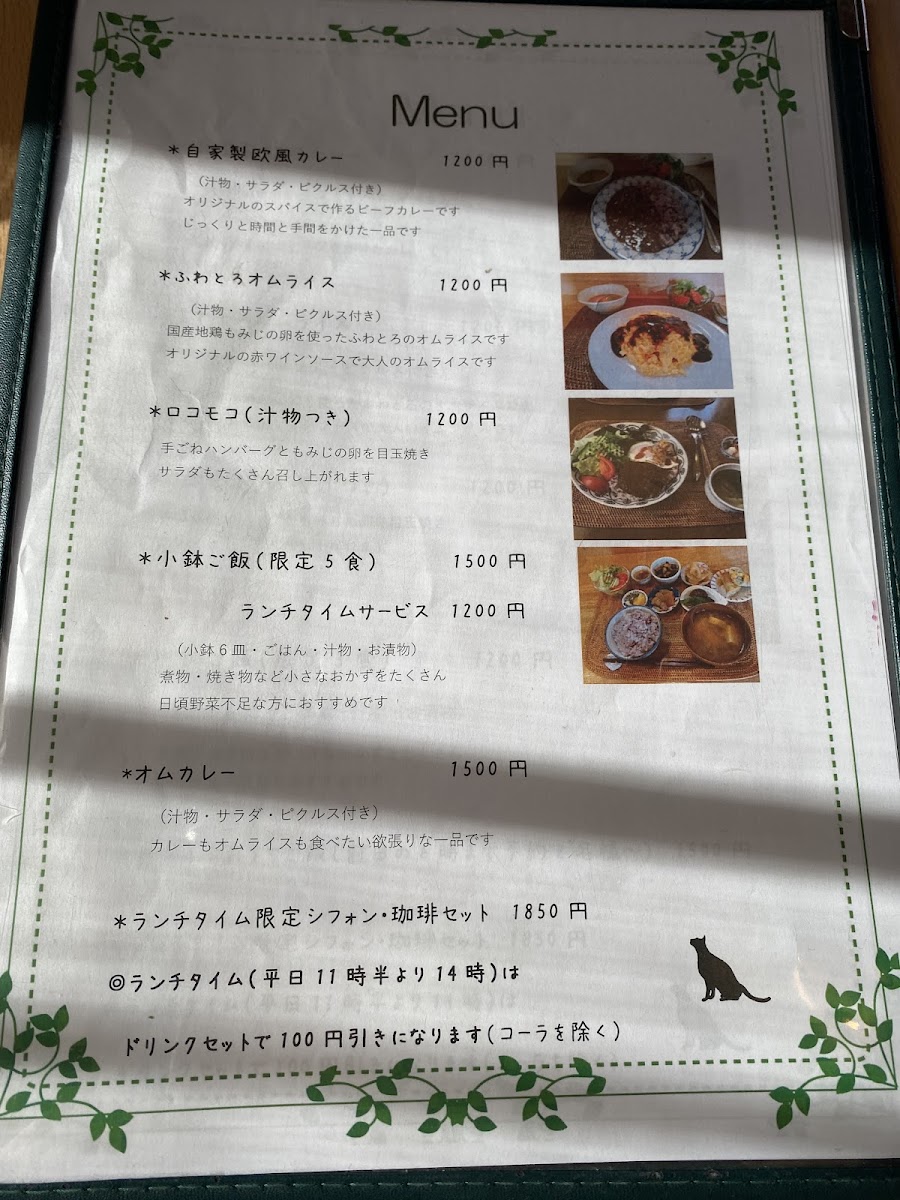 Menu
*自家製欧風カレー 1200 円
(汁物・サラダ・ピクルス付き)
オリジナルのスパイスで作るビーフカレーです
じっくりと時間と手間をかけた一品です
*ふわとろオムライス 1200 円
(汁物・サラダ・ピクルス付き)
国産地鶏もみじの卵を使ったふわとろのオムライスです
オリジナルの赤ワインソースで大人のオムライスです
*ロコモコ(汁物つき) 1200 円
手ごねハンバーグともみじの卵を目玉焼き
サラダもたくさん召し上がれます
*小鉢ご飯(限定5食) 1500 円
ランチタイムサービス 1200 円
(小鉢6皿・ごはん・汁物・お漬物)
煮物・焼き物など小さなおかずをたくさん
日頃野菜不足な方におすすめです
*オムカレー 1500 円
(汁物・サラダ・ピクルス付き)
カレーもオムライスも食べたい欲張りな一品です
*ランチタイム限定シフォン・珈琲セット 1850 円
◎ランチタイム(平日11時半より14時)は
ドリンクセットで100円引きになります(コーラを除く)